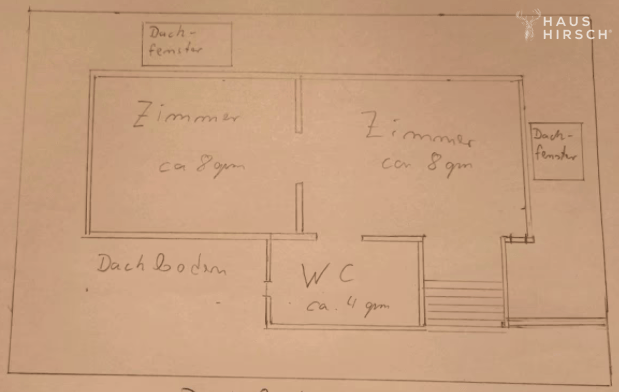 HAUS
HIRSCH
Dach-
fenster
Zimmer
ca 8 qm
Zimmer
ca. 8 qm
Dach-
fenster
Dachboden
WC
ca. 4 qm